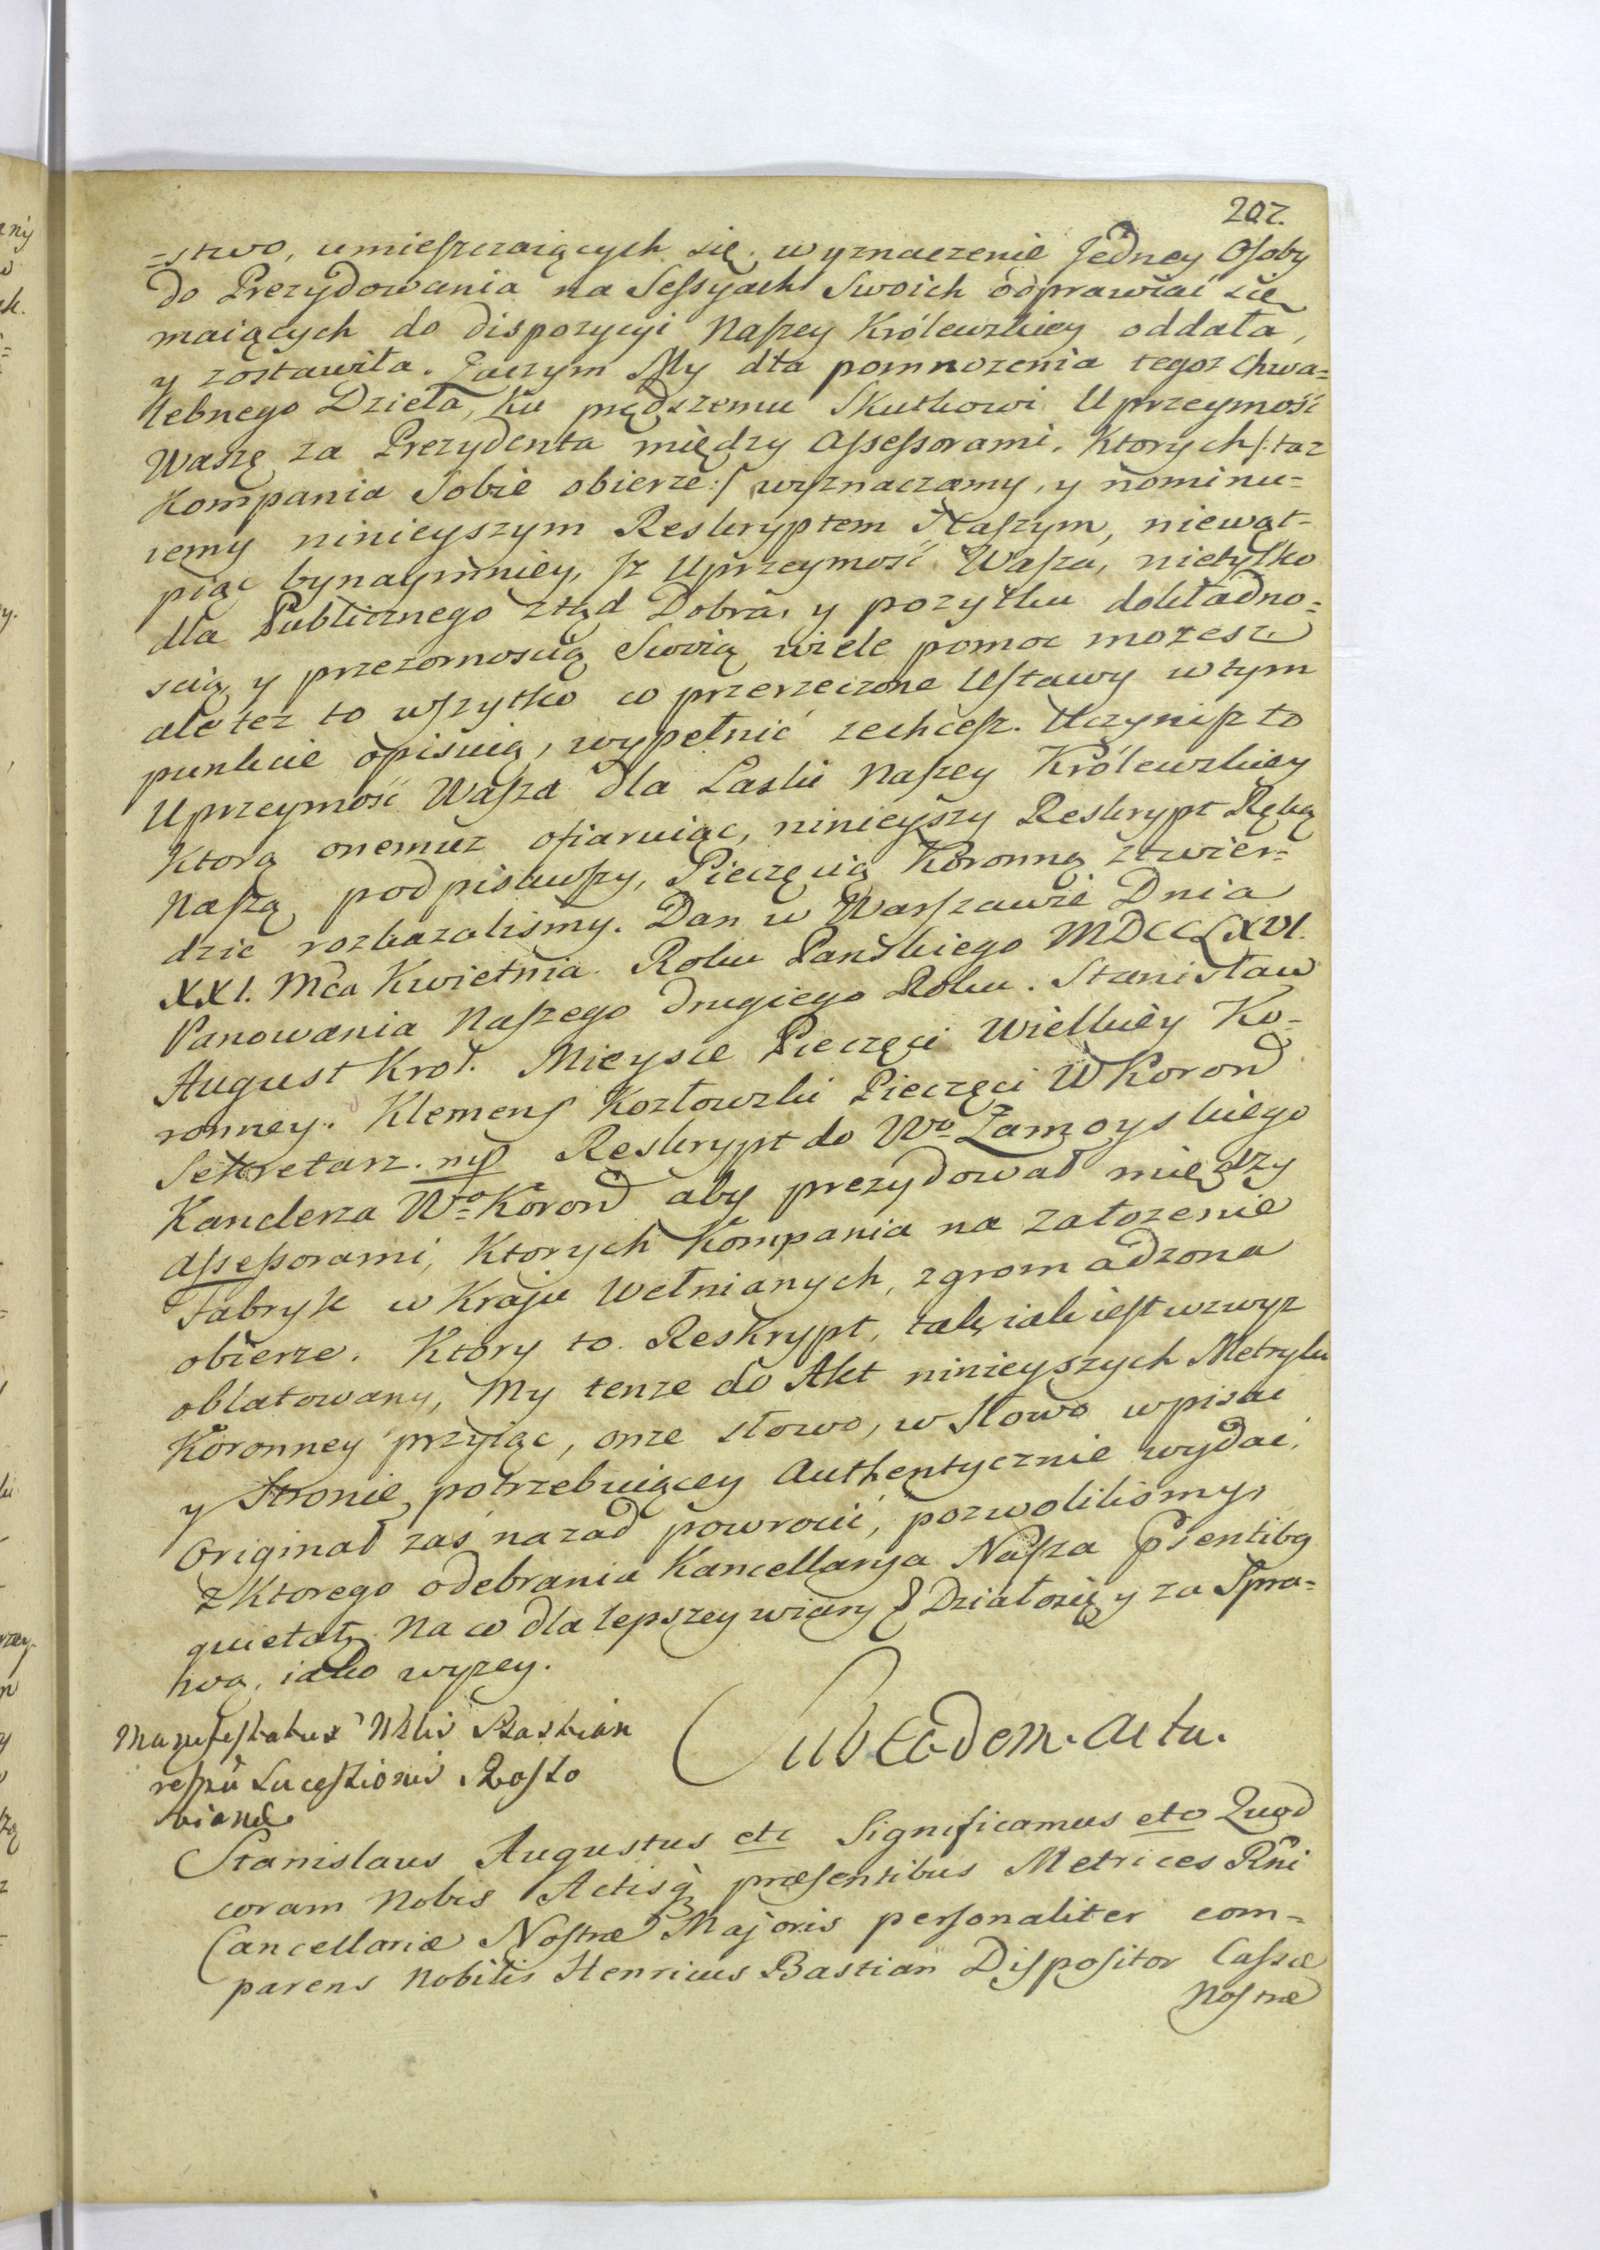 207.
=stwo, umieszczaiących się wyznaczenie Jedney Osoby
do Prezydowania na Sessyach Swoich odprawiać się
maiących do dispozycyi Naszey Królewskiey oddała,
y zostawiła. Zaczym My dla pomnozenia tegoz Chwa=
lebnego Dzieła, ku prędszemu Skutkowi Uprzeymość
Waszę za Prezydenta między Assessorami, Ktorych /: taz
Kompania Sobie obierze :/ wyznaczamy, y nominu=
iemy ninieyszym Reskryptem Naszym, niewąt-
piąc bynaymniey, Jz Uprzeymość Wasza, nietylko
dla Publicznego ztąd Dobra, y pozytku dokładno=
scią, y przezornoscią Swoią wiele pomoc mozesz
ale tez to wszytko co przerzeczone Ustawy w tym
punkcie opisuią, wypełnić zechcesz. Uczynisz to
Uprzeymość Wasza dla Laski Naszey Królewskiey
Ktorą onemuz ofiaruiąc, ninieyszy Reskrypt Ręką
Naszą podpisawszy, Pieczęcią Koronną ztwier=
dzic rozkazalismy. Dan w Warszawie Dnia
XXI. Mca Kwietnia Roku Pańskiego MDCCLXVI.
Panowania Naszego drugiego Roku. Stanisław
August Krol. Mieysce Pieczęci Wielkiey Ko-
ronney. Klemens Kozłowski Pieczęci W Koron
Sekretarz. mp Reskrypt do Wo Zamoyskiego
Kanclerza Wo Koron aby prezydował między
Assessorami, Ktorych Kompania na załozenie
Fabryk w Kraju Wełnianych, zgromadzona
obierze. Ktory to Reskrypt, tak iak iest wzwyz
oblatowany, My tenze do Akt ninieyszych Metryki
Koronney przyiąc, onze słowo, w Słowo wpisać
y Stronie potrzebuiącey Authentycznie wydać,
Originał zaś nazad powrocić, pozwolilismy,
z Ktorego odebrania Kancellarya Nasza psentibg
quietat. Na co dla lepszey wiary & Działosię y za Spra=
wą, iako wyzey.
Manifestatus Nblis Bastian
respu Successionis Rosło
viana
Sub eadem Actu.
Stanislaus Augustus etc Significamus etc Quod
coram Nobis Actisq præsentibus Metrices Rni
Cancellariæ Nostræ Majoris personaliter com=
parens Nobilis Henricus Bastian Dispositor Cassæ
Nostræ